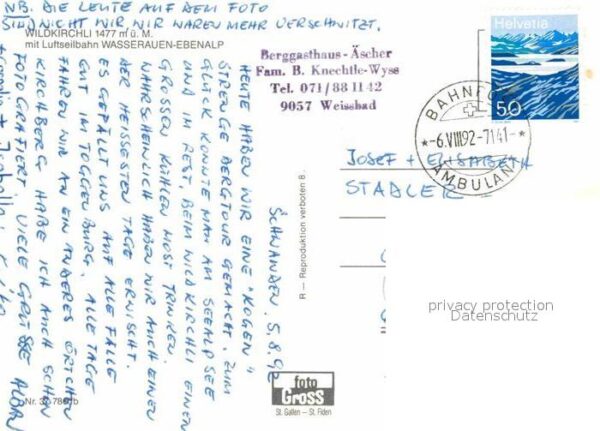 NB. DIE LEUTE AUF DEM FOTO
SIND NICHT WIR, WIR WAREN MEHR VERSCHWITZT.
WILDKIRCHLI 1477 m ü. M.
mit Luftseilbahn WASSERAUEN-EBENALP
SCHWANDEN, 5.8.92
HEUTE HABEN WIR EINE "KOGEN"
STRENGE BERGTOUR GEMACHT. ZUM
GLÜCK KONNTE MAN AM SEEALPSEE
UND IM REST. BEIM WILDKIRCHLI EINEN
GROSSEN KÜHLEN MOST TRINKEN.
WAHRSCHEINLICH HABEN WIR AUCH EINEN
DER HEISSESTEN TAGE ERWISCHT.
ES GEFÄLLT UNS AUF ALLE FÄLLE
GUT IM TOGGENBURG. ALLE TAGE
FAHREN WIR AN EIN ANDERES ÖRTCHEN
KIRCHBERG HABE ICH AUCH SCHON
FOTOGRAFIERT. VIELE GRÜSSE
+ Isabelle
Berggasthaus-Äscher
Fam. B. Knechtle-Wyss
Tel. 071/88 11 42
9057 Weissbad
Helvetia
50
BAHNPOST
-6.VIII.92-7141-
AMBULANT
JOSEF + ELISABETH
STADLER
R — Reproduktion verboten 8
privacy protection
Datenschutz
foto
GROSS
St. Gallen - St. Fiden
Nr.